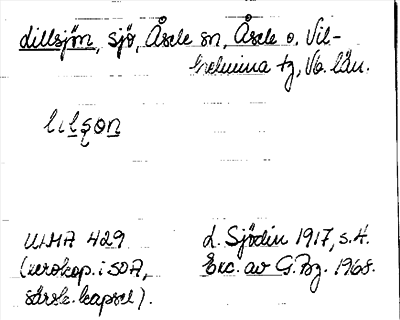 Lillsjön, sjö, Åsele sn, Åsele o. Vil-
helmina tg, Vb. län.
lılson
ULMA 429
(xerokop. i SOA,
särsk. kapsel).
L. Sjödin 1917, s. 4.
Exc. av G. Bg. 1968.